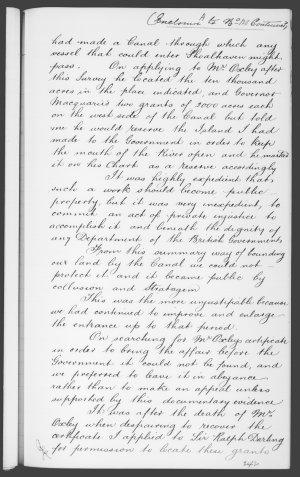 (Enclosure to No 22 Continued)
had made a Canal through which any
vessel that could enter Shoalhaven might
pass. On applying to Mr Oxley after
this Survey he located the ten thousand
acres in the place indicated, and Governor
Macquarie's two grants of 2000 acres each
on the west side of the Canal but told
me he would reserve the Island I had
made to the Government in order to keep
the mouth of the River open and he marked
it on his Chart as a reserve accordingly
It was highly expedient that
such a work should become public
property, but it was very inexpedient, to
commit an act of private injustice to
accomplish it and beneath the dignity of
any Department of the British Government
From this summary way of bounding
our land by the Canal we could not
protect it and it became public by
collusion and Stratagem
This was the more unjustifiable because
we had continued to improve and enlarge
the entrance up to that period.
On searching for Mr Oxley certificate
in order to bring the affair before the
Government it could not be found, and
we preferred to leave it in abeyance
rather than to make an appeal unless
supported by this documentary evidence
It was after the death of Mr
Oxley when despairing to recover the
certificate I applied to Sir Ralph Darling
for permission to locate these grants